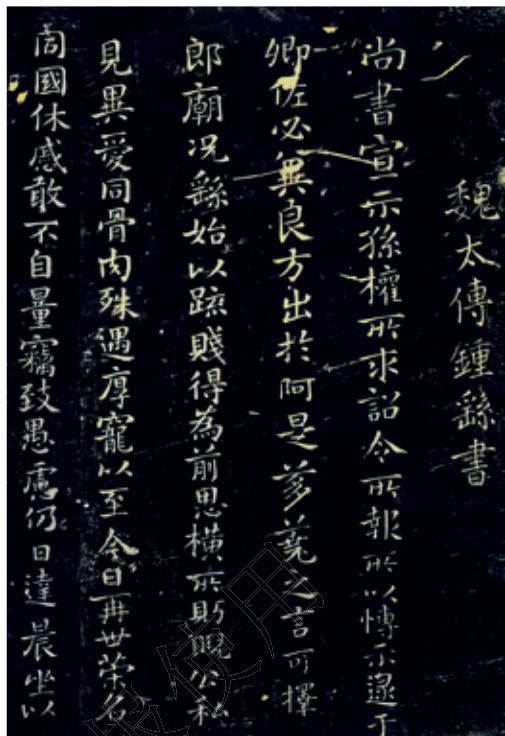 魏太傅鍾繇書
尚書宣示孫權所求詔令所報所以博示逮于
卿佐必冀良方出於阿是芻蕘之言可擇
郎廟況繇始以疏賤得為前恩橫所眄睨公私
見異愛同骨肉殊遇厚寵以至今日再世榮名
同國休慼敢不自量竊致愚慮仍日達晨坐以